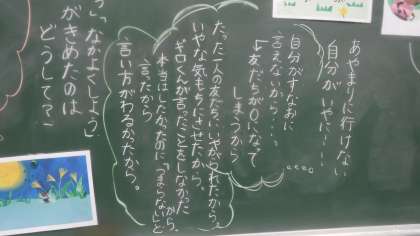 あやまりに行けない
自分がいやに…
自分がすなおに
言えないから…
↓友だちが0になって
しまうから
たった一人の友だちにいやがられたから
いやな気もちにさせたから、
ギロくんが言ったことをしなかったから、
本当はしたかったのに「つまらない」と
言ったから
言い方がわるかったから。
なかよくしよう」
がきめたのは
どうして？